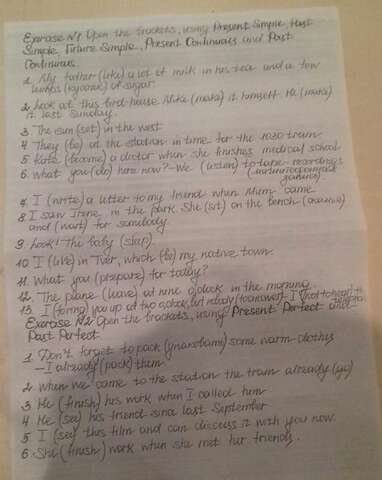 Exercise №1 Open the brackets, using Present Simple, Past
Simple, Future Simple, Present Continuous and Past
Continuous.
1. My father (like) a lot of milk in his tea and a few
lumps of sugar.
2. Look at this bird-house. Mike (make) it himself. He (make)
it last Sunday.
3 The sun (set) in the west
4 They (be) at the station in time for the 10.30 train.
5 Kate (become) a doctor when she finishes medical school
6 What you (do) here now? - We (listen) to tape-recordings
7 I (write) a letter to my friend when Mum came
8 I saw Irene in the park. She (sit) on the bench
and (wait) for somebody.
9 Look! The baby (sleep)
10 I (live) in Tver, which (be) my native town.
11. What you (prepare) for today?
12. The plane (leave) at nine o,clock in the morning.
13. I you up at two o,clock, but nobody (to answer). I (not to hear)
Exercise №2 Open the brackets, using Present Perfect and
Past Perfect.
1 Don't forget to pack (упаковать) some warm clothes
- I already (pack) them
2 When we came to the station the train already (go)
3 He (finish) his work when I called him
4 He (see) his friend since last September
5 I (see) this film and can discuss it with you now.
6 She (finish) work when she met her friends.